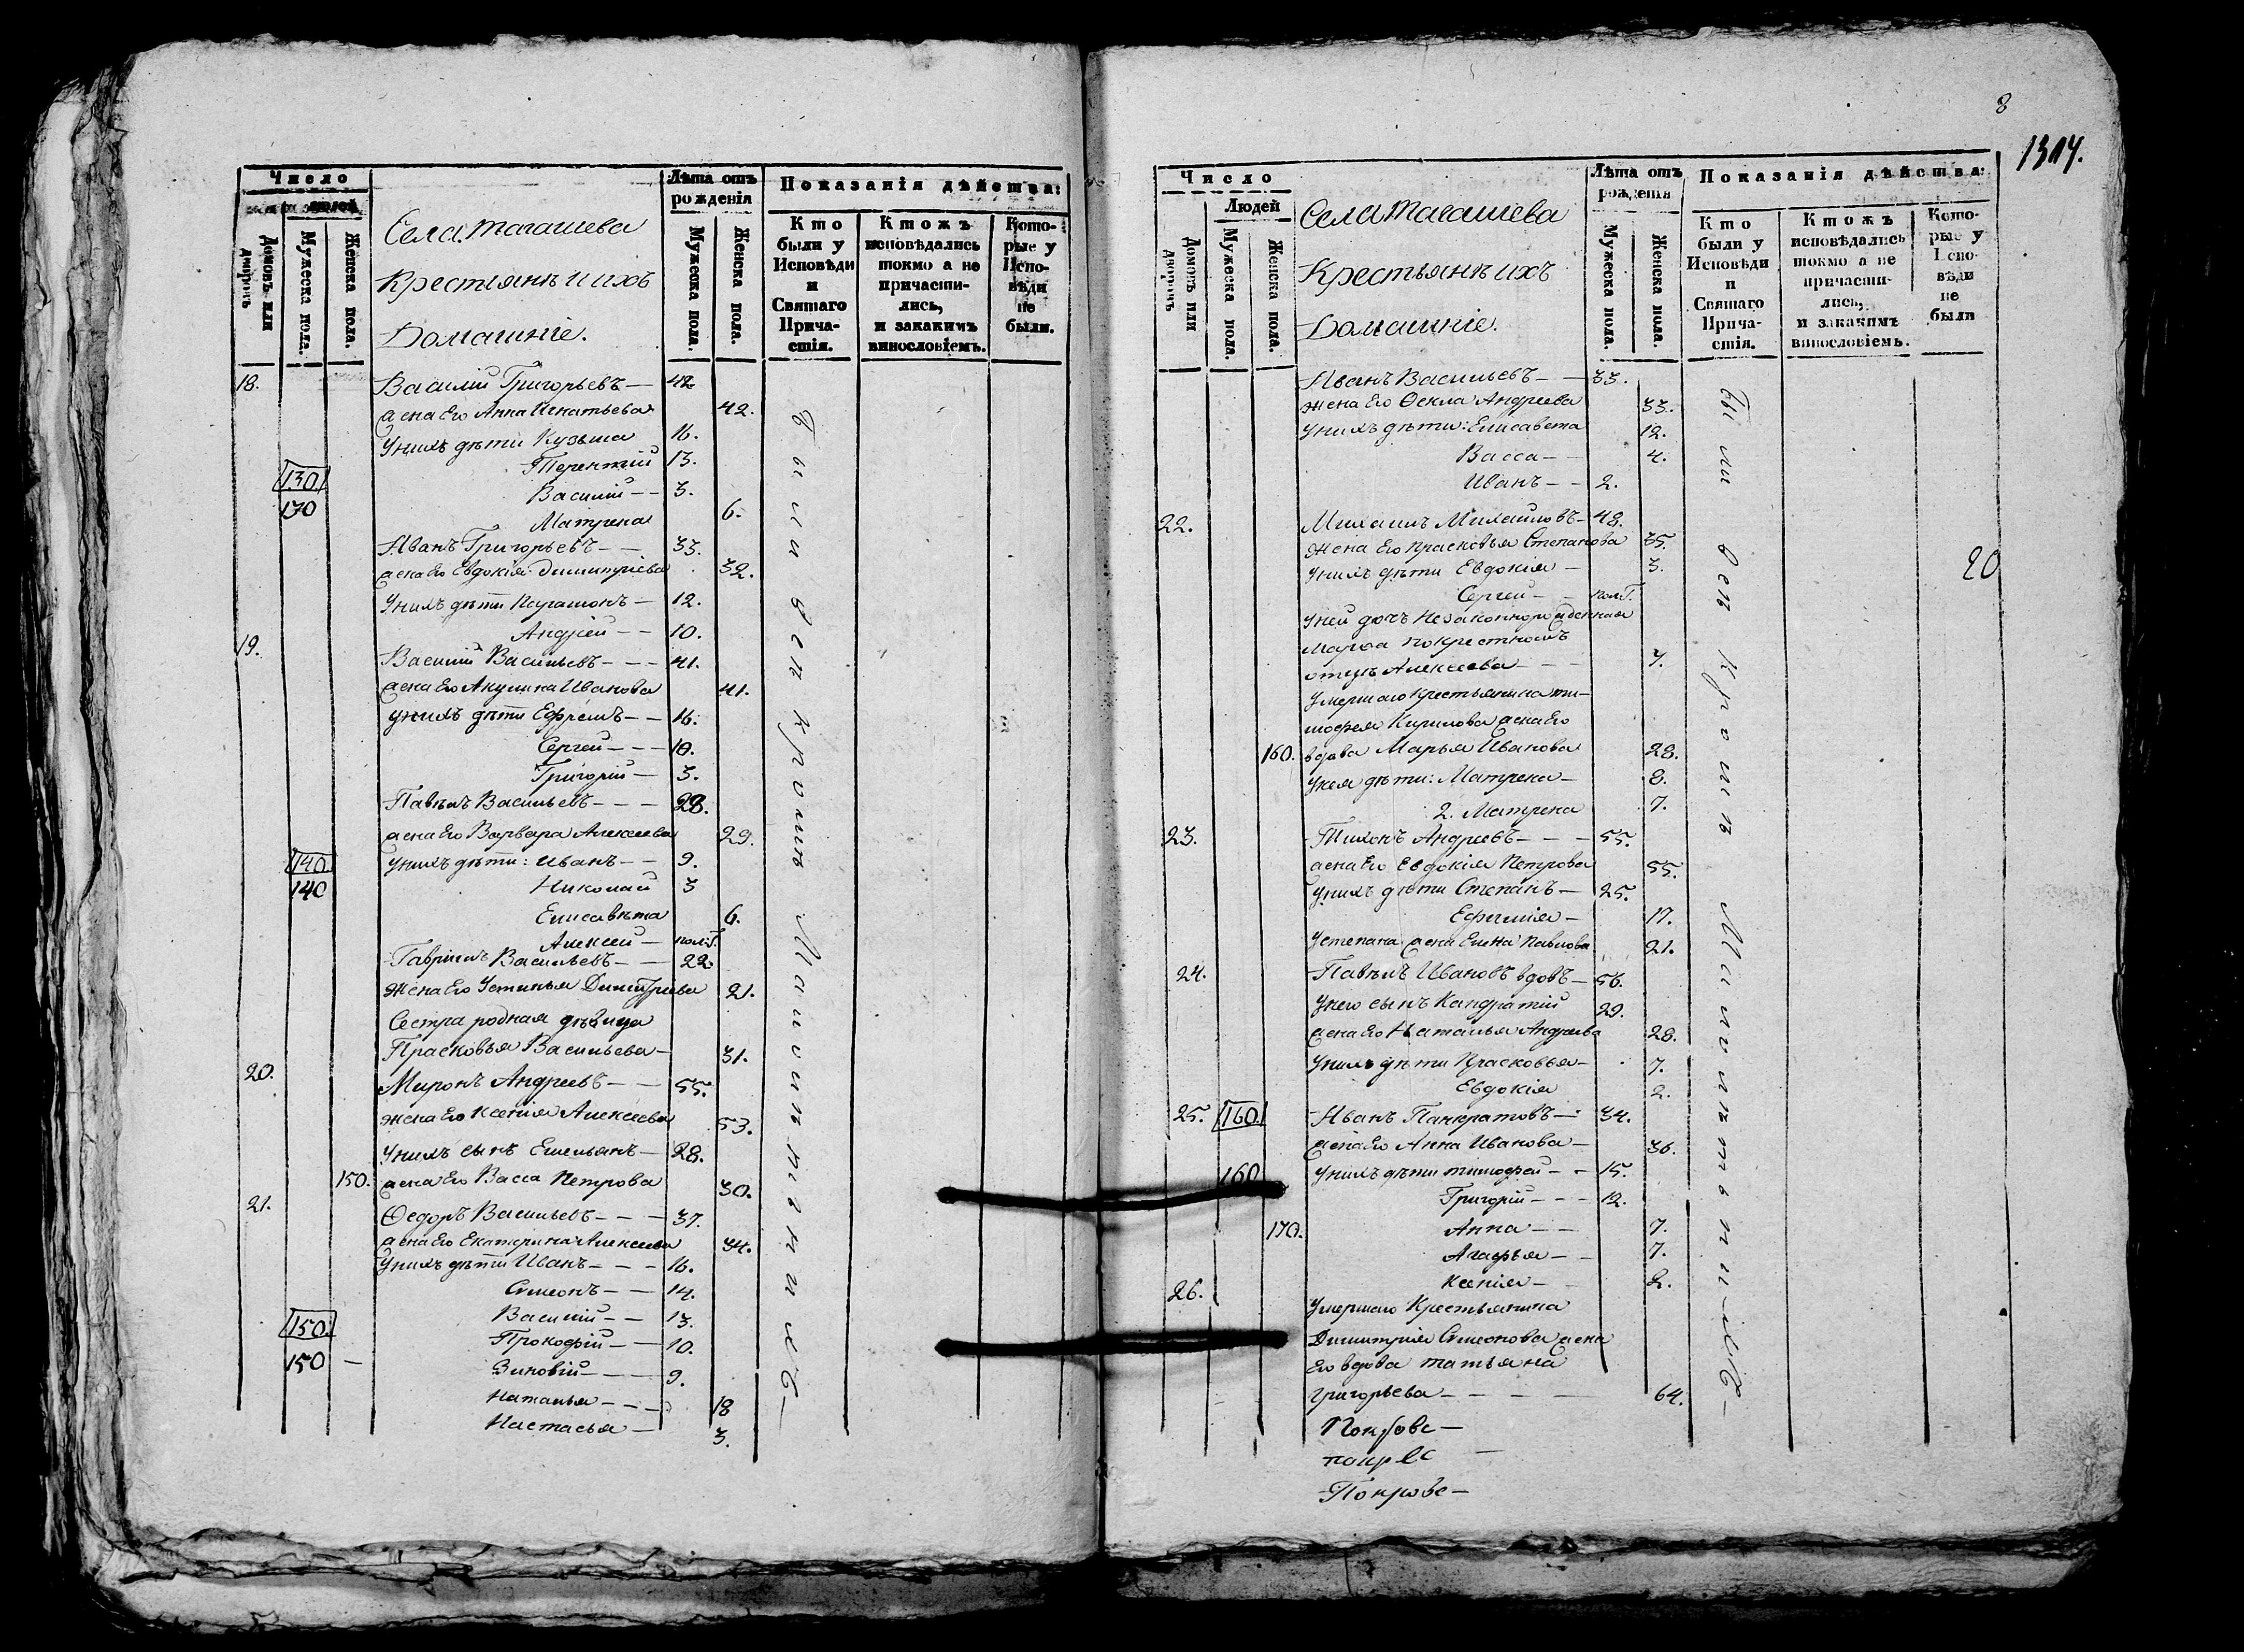 Число
Лѣта отъ рожденія
Показанія дѣйства:
Домовъ или дворовъ
Мужеска пола.
Женска пола.
Села Тагашева
Крестьянъ и ихъ
Домашніе.
Мужеска пола.
Женска пола.
Кто были у Исповѣди и Святаго Причастія.
Ктожъ исповѣдались токмо а не причастились, и закакимъ винословіемъ.
Которые у Исповѣди не были.
18. Василій Григорьевъ — 42
жена Его Анна Игнатьева 42.
Унихъ дѣти Кузьма 16.
Терентій 13.
130 Василій — — 3.
130 Матрена 6.
Иванъ Григорьевъ — — 33.
жена Его Евдокія Димитріева 32.
Унихъ дѣти Парамонъ — 12.
Андрей — — 10.
19. Василий Васильевъ — — — 41.
жена Его Акулина Иванова 41.
Унихъ дѣти Ефремъ — — 16.
Сергей — — — 10.
Григорій — 3.
Павелъ Васильевъ — — — 28.
жена Его Варвара Алексеева 29.
140. Унихъ дѣти: Иванъ — — 9.
140 Николай 3
Елисавѣта 6.
Алексей — пол.Г.
Гавріилъ Васильевъ — — 22.
Жена Его Устинья Димитріева 21.
Сестра родная дѣвица
Прасковья Васильева — 31.
20. Миронъ Андреевъ — — 55.
жена Его Ксенія Алексеева 53.
Унихъ сынъ Емельянъ — 28.
150. жена Его Васса Петрова 30.
21. Ѳедоръ Васильевъ — — — 37.
жена Его Екатерина Алексеева 34.
Унихъ дѣти Иванъ — — — 16.
Симеонъ — — 14.
150. Василій — — 13.
Прокофій — — 10.
150 — Зиновій — — — 9.
Наталья — — — 18
Настасья — 3.
Были вси кромѣ Малолѣтнихъ —
8
1314.
Число
Людей
Лѣта отъ рожденія
Показанія дѣйства:
Домовъ или дворовъ
Мужеска пола.
Женска пола.
Села Тагашева
Крестьянъ ихъ
Домашніе.
Мужеска пола.
Женска пола.
Кто были у Исповѣди и Святаго Причастія.
Ктожъ исповѣдались токмо а не причастились, и закакимъ винословіемъ.
Которые у Исповѣди не были
Иванъ Васильевъ — — 33.
жена Его Ѳекла Андреева 33.
Унихъ дѣти: Елисавета 12.
Васса — 4.
Иванъ — — 2.
22. Михаилъ Михайловъ — 48.
Жена Его Прасковья Степанова 35.
Унихъ дѣти Евдокія — 3.
20
Сергей — — пол.Г.
Уней дочь Незаконнорожденная
Марѳа покрестномъ
отцѣ Алексеева — — — 7.
Умершаго крестьянина Ти-
мофея Кирилова жена Его
160. вдова Марья Иванова 28.
Унея дѣти: Матрена — 8.
2. Матрена 7.
23. Тихонъ Андреевъ — — — 55.
жена Его Евдокія Петрова 55.
Унихъ дѣти Степанъ — 25.
Ефимія — 17.
Устепана жена Елена Павлова 21.
24. Павелъ Ивановъ вдовъ — 56.
Унего сынъ Кандратій 29.
жена Его Наталья Андреева 28.
Унихъ дѣти Прасковья — 7.
Евдокія 2.
25. 160. Иванъ Панкратовъ — 34.
жена Его Анна Иванова — 36.
160 Унихъ дѣти Тимофей — — 15.
Григорій — — — 12.
170. Анна — — 7.
Агафья — — 7.
Ксенія — 2.
26. Умершаго Крестьянина
Димитрія Симеонова жена
Его вдова Татьяна
Григорьева — — — — 64.
Были вси кромѣ Малолѣтнихъ —
Покрове —
Покрове —